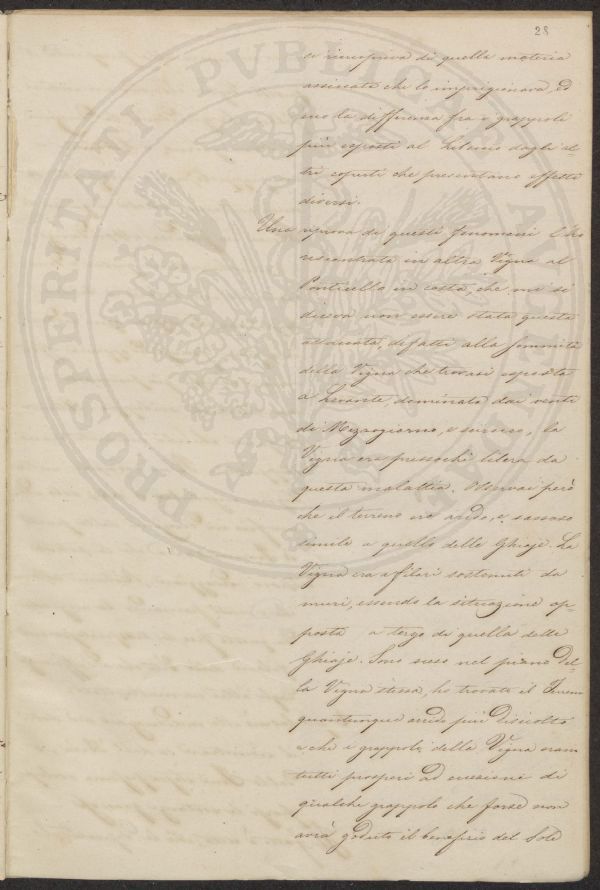 28
si ricopriva di quella materia
assiccata che lo imprigionava, ed
ecco la differenza fra i grappoli
più esposti al Silenzio dagli al=
tri coperti che presentano effetti
diversi.
Una riprova di questi fenomeni l'ho
rescontrata in altra Vigna al
Ponticello in costa, che mi si
diceva non essere stata questa
, difatti alla sommità
della Vigna che trovasi esposta
a Levante, dominata dai venti
di Mezzogiorno, e sirocco, la
Vigna era pressochè libera da
questa malattia. Observai però
che il terreno era arido, e sassoso
simile a quello delle Ghiaje. La
Vigna era a filari sostenuti da
muri, essendo la situazione op=
posta a tergo di quella delle
Ghiaje. Sono sceso nel piano del=
la Vigna stessa, ho trovato il Terreno
quantunque arido più disciolto
e che i grappoli della Vigna eran
tutti prosperi ad eccezione di
qualche grappolo che forse non
avrà goduto il beneficio del Sole
PROSPERITATI PVBLICAE AVGENDAE